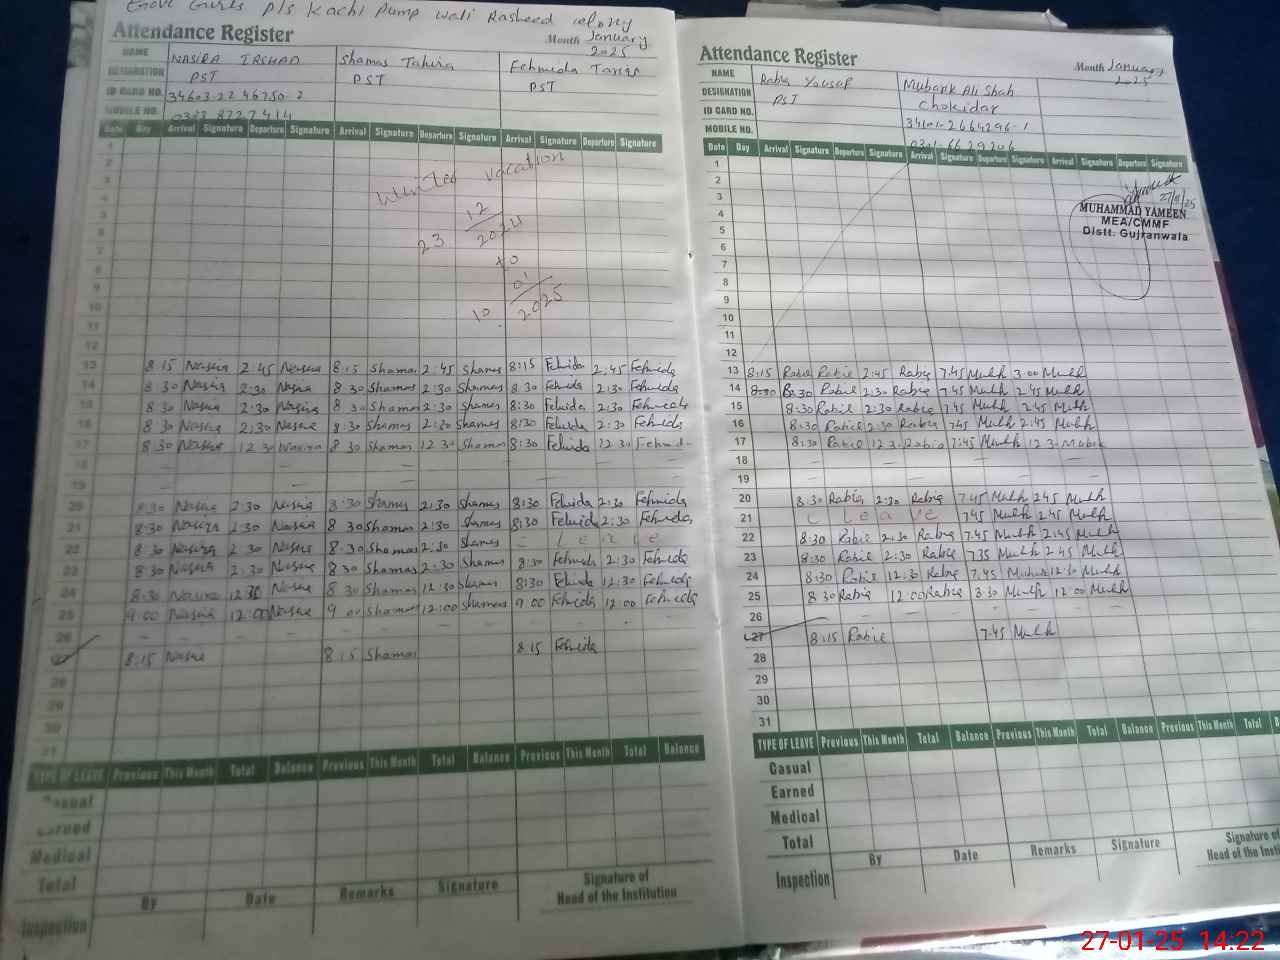 Govt Girls p/s Kachi Pump wali Rasheed colony
Attendance Register
Month January 2025
NAME NASIRA IRSHAD Shamas Tahira Fehmida
DESIGNATION PST PST PST
ID CARD NO. 34603-22 46750-2
MOBILE NO.
Date Day Arrival Signature Departure Signature Arrival Signature Departure Signature Arrival Signature Departure Signature
1
2
3
4
5
6
7
8
9
10
11
12
vacation
23 12/2024
to
10 01/2025
13 8:15 Nasira 2:45 Nasira 8:15 Shamas 2:45 Shamas 8:15 Fehmida 2:45 Fehmida
14 8:30 Nasira 2:30 Nasira 8:30 Shamas 2:30 Shamas 8:30 Fehmida 2:30 Fehmida
15 8:30 Nasira 2:30 Nasira 8:30 Shamas 2:30 Shamas 8:30 Fehmida 2:30 Fehmida
16 8:30 Nasira 2:30 Nasira 8:30 Shamas 2:30 Shamas 8:30 Fehmida 2:30 Fehmida
17 8:30 Nasira 12:30 Nasira 8:30 Shamas 12:30 Shamas 8:30 Fehmida 12:30 Fehmida
18 – – – – –
19 – – – – –
20 8:30 Nasira 2:30 Nasira 8:30 Shamas 2:30 Shamas 8:30 Fehmida 2:30 Fehmida
21 8:30 Nasira 2:30 Nasira 8:30 Shamas 2:30 Shamas 8:30 Fehmida 2:30 Fehmida
22 8:30 Nasira 2:30 Nasira 8:30 Shamas 2:30 Shamas C Leave
23 8:30 Nasira 2:30 Nasira 8:30 Shamas 2:30 Shamas 8:30 Fehmida 2:30 Fehmida
24 8:30 Nasira 12:30 Nasira 8:30 Shamas 12:30 Shamas 8:30 Fehmida 12:30 Fehmida
25 9:00 Nasira 12:00 Nasira 9:00 Shamas 12:00 Shamas 9:00 Fehmida 12:00 Fehmida
26 – – – – –
27 8:15 Nasira 8:15 Shamas 8:15 Fehmida
28
29
30
31
TYPE OF LEAVE Previous This Month Total Balance Previous This Month Total Balance Previous This Month Total Balance
Casual
Earned
Medical
Total
Inspection By Date Remarks Signature Signature of Head of the Institution
Attendance Register
Month January 2025
NAME Rabia Yousaf Mubark Ali Shah
DESIGNATION PST Chokidar
ID CARD NO. 34101-2664296-1
MOBILE NO. 0301-6629206
Date Day Arrival Signature Departure Signature Arrival Signature Departure Signature Arrival Signature Departure Signature
1
2
3
4
5
6
7
8
9
10
11
12
MUHAMMAD YAMEEN
MEA/CMMF
Distt. Gujranwala
13 8:15 Rabia Rabia 2:45 Rabia 7:45 Mubk 3:00 Mubk
14 8:30 8:30 Rabia 2:30 Rabia 7:45 Mubk 2:45 Mubk
15 8:30 Rabia 2:30 Rabia 7:45 Mubk 2:45 Mubk
16 8:30 Rabia 2:30 Rabia 7:45 Mubk 2:45 Mubk
17 8:30 Rabia 12:30 Rabia 7:45 Mubk 12:30 Mubk
18 – – – – –
19 – – – – –
20 8:30 Rabia 2:30 Rabia 7:45 Mubk 2:45 Mubk
21 C Leave 7:45 Mubk 2:45 Mubk
22 8:30 Rabia 2:30 Rabia 7:45 Mubk 2:45 Mubk
23 8:30 Rabia 2:30 Rabia 7:35 Mubk 2:45 Mubk
24 8:30 Rabia 12:30 Rabia 7:45 Mubk 12:30 Mubk
25 8:30 Rabia 12:00 Rabia 8:30 Mubk 12:00 Mubk
26 – – – –
27 8:15 Rabia 7:45 Mubk
28
29
30
31
TYPE OF LEAVE Previous This Month Total Balance Previous This Month Total Balance Previous This Month Total
Casual
Earned
Medical
Total
Inspection By Date Remarks Signature Signature of Head of the
27-01-25 14:22